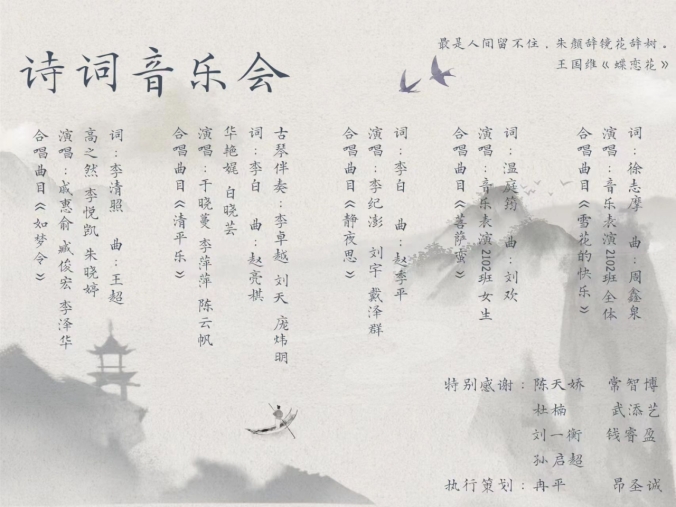 诗词音乐会
最是人间留不住，朱颜辞镜花辞树。
王国维《蝶恋花》
合唱曲目《雪花的快乐》
演唱：音乐表演2102班全体
词：徐志摩 曲：周鑫泉
合唱曲目《菩萨蛮》
演唱：音乐表演2102班女生
词：温庭筠 曲：刘欢
合唱曲目《静夜思》
演唱：李纪澎 刘宇 戴泽群
词：李白 曲：赵季平
合唱曲目《清平乐》
演唱：干晓蔓 李萍萍 陈云帆
华艳娓 白晓芸
词：李白 曲：赵亮棋
古琴伴奏：李卓越 刘天 庞炜明
合唱曲目《如梦令》
演唱：成惠俞 臧俊宏 李泽华
高之然 李悦凯 朱晓婷
词：李清照 曲：王超
特别感谢：陈天娇 常智博
杜楠 武添艺
刘一衡 钱睿盈
孙启超
执行策划：冉平 昂圣诚